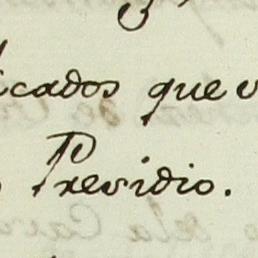 cados que
Presidio.